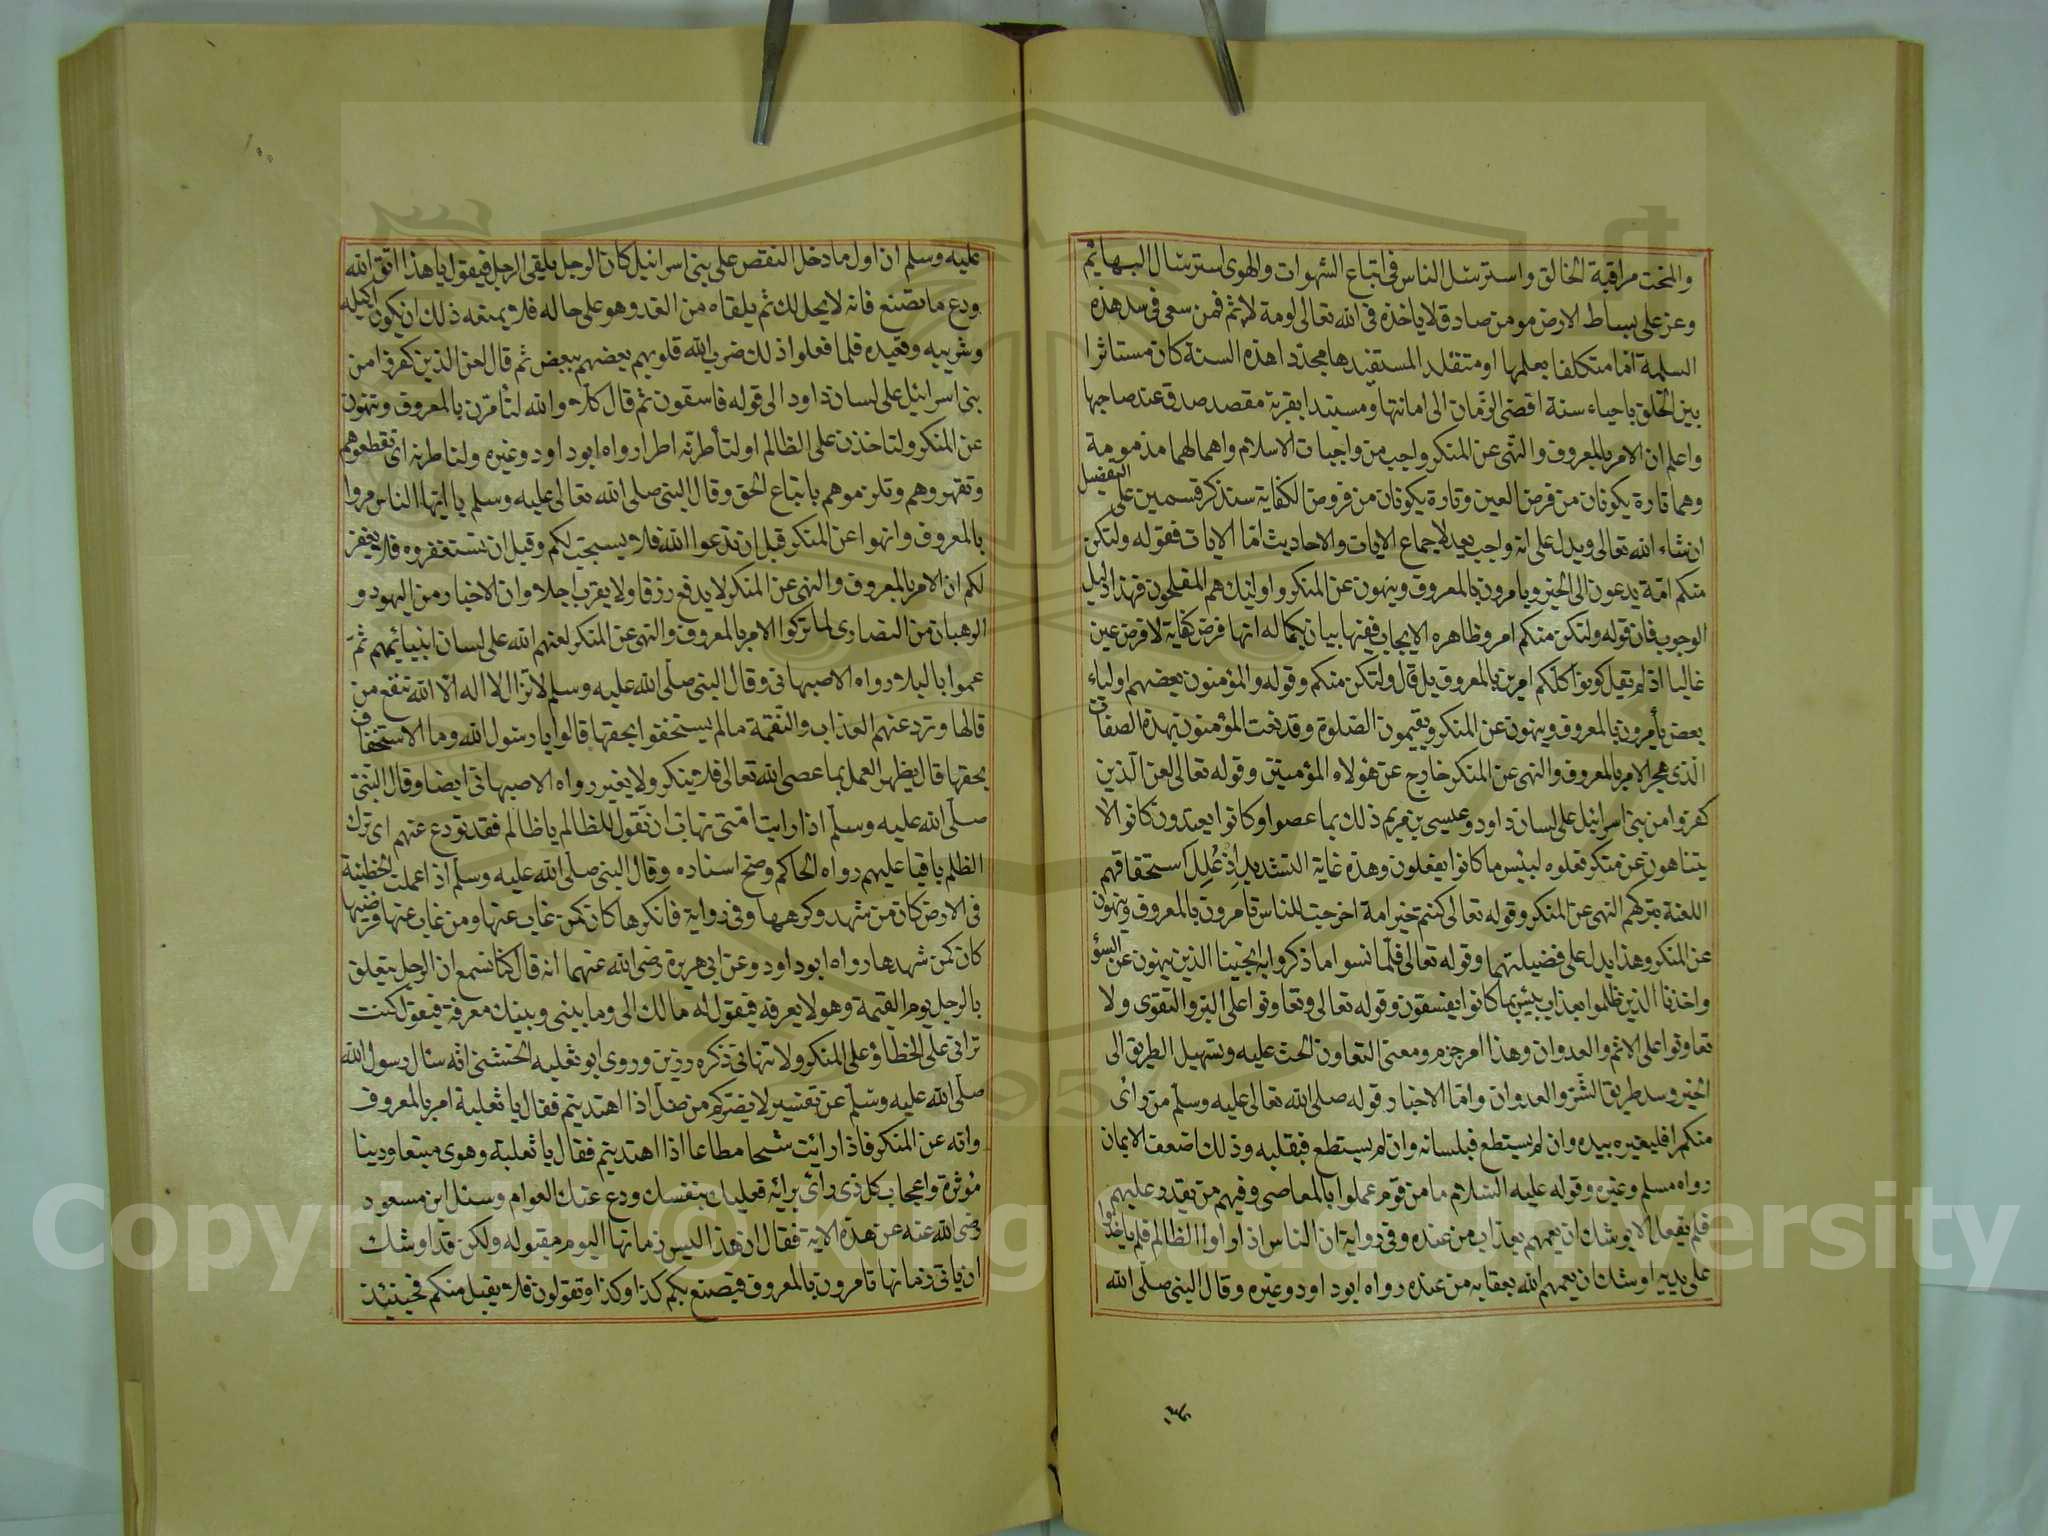 وانمحت مراقبة الخالق واسترسل الناس في اتباع الشهوات والهوى استرسال البهايم
وعن على بساط الارض مومن صادق لا ياخذه في الله تعالى لومة لائم فمن سعى في سد هذه
السلمة اما متكلفا بعلمها او متقلد المستفيدها مجددا هذه السنة كان مستاثرا
بين الخلق باحياء سنة اقضى الزمان الى امانتها ومستبدا بقربة مقصد صدق عند صاحبها
واعلم ان الامر بالمعروف والنهى عن المنكر واجب من واجبات الاسلام واهمالهما مذمومة
وهما تارة يكونان من فرض العين وتارة يكونان من فروض الكفاية سنذكر قسمين على التفضيل
ان شاء الله تعالى ويدل على انه واجب بعد لاجماع الايات والاحاديث اما الايات فقوله ولتكن
منكم امة يدعون الى الخير ويامرون بالمعروف وينهون عن المنكر واوليك هم المفلحون فهذا دليل
الوجوب فان قوله ولتكن منكم امر وظاهره الايجاب ففيها بيان بكماله انها فرض كفاية لا فرض عين
غالبا اذ لم تقيل كونوا كلكم امرين بالمعروف بل قال ولتكن منكم وقوله والمؤمنون بعضهم اولياء
بعض يأمرون بالمعروف وينهون عن المنكر ويقيمون الصلوة وقد نعت المؤمنون بهذه الصفات
الذى هجر الامر بالمعروف والنهى عن المنكر خارج عن هؤلاء المؤمينن وقوله تعالى لعن الذين
كفروا من بنى اسرائيل على لسان داود وعيسى بن مريم ذلك بما عصوا وكانوا يعتدون كانوا لا
يتناهون عن منكر فعلوه لبئس ما كانوا يفعلون وهذه غاية التشديد اذ علل استحقاقهم
اللعنة بتركهم النهى عن المنكر وقوله تعالى كنتم خير امة اخرجت للناس تامرون بالمعروف وتنهون
عن المنكر وهذا يدل على فضيلتهما وقوله تعالى فلما نسوا ما ذكروا به انجينا الذين ينهون عن السوء
واخذنا الذين ظلموا بعذاب بئيس بما كانوا يفسقون وقوله تعالى وتعاونوا على البر والتقوى ولا
تعاونوا على الاثم والعدوان وهذا امر جزم ومعنى التعاون الحث عليه وتسهيل الطريق الى
الخير وسد طريق الشر والعدوان واما الاخبار قوله صلى الله تعالى عليه وسلم من راى
منكرا فليغيره بيده وان لم يستطع فبلسانه وان لم يستطع فبقلبه وذلك اضعف الايمان
رواه مسلم وغيره وقوله عليه السلام ما من قوم عملوا بالمعاصى وفيهم من يقدر عليهم
فلم يفعل الا يوشك ان يعمهم بعذاب من عنده وفي رواية ان الناس اذا راوا الظالم فلم ياخذوا
على يديه اوشك ان يعمهم الله بعقابه من عنده رواه ابو داود وغيره وقال النبى صلى الله
عليه وسلم ان اول ما دخل النقص على بنى اسرائيل كان الرجل يلقى الرجل فيقول يا هذا اتق الله
ودع ما تصنع فانه لا يحل لك ثم يلقاه من الغد وهو على حاله فلا يمنعه ذلك ان يكون اكيله
وشريبه وقعيده فلما فعلوا ذلك ضرب الله قلوبهم بعضهم ببعض ثم قال لعن الذين كفروا من
بنى اسرائيل على لسان داود الى قوله فاسقون ثم قال كلا والله لتأمرن بالمعروف وتنهون
عن المنكر ولتاخذن على الظالم اولتأطرنه اطرا رواه ابو داود وغيره ولتاطرنه اى تقطعوهم
وتقهروهم وتلزموهم باتباع الحق وقال النبى صلى الله تعالى عليه وسلم يا ايها الناس مروا
بالمعروف وانهوا عن المنكر قبل ان تدعوا الله فلا يستجيب لكم وقبل ان تستغفروه فلا يغفر
لكم ان الامر بالمعروف والنهى عن المنكر لا يدفع رزقا ولا يقرب اجلا وان الاخبار من اليهود و
الرهبان من النصارى لما تركوا الامر بالمعروف والنهى عن المنكر لعنهم الله على لسان انبيائهم ثم
عموا بالبلا رواه الاصبهانى وقال النبى صلى الله عليه وسلم لا تزال لا اله الا الله تنفع من
قالها وترد عنهم العذاب والنقمة ما لم يستخفوا بحقها قالوا يا رسول الله وما الاستخفاف
بحقها قال يظهر العمل بما عصى الله تعالى فلا ينكر ولا يغير رواه الاصبهانى ايضا وقال النبى
صلى الله عليه وسلم اذا رايت امتى تهاب ان تقول للظالم يا ظالم فقد تودع عنهم اى ترك
الظلم باقيا عليهم رواه الحاكم وصح اسناده وقال النبى صلى الله عليه وسلم اذا عملت الخطيئة
فى الارض كان من شهد وكرهها وفى رواية فانكرها كان كمن غاب عنها ومن غاب عنها فرضيها
كان كمن شهدها رواه ابو داود وعن ابى هريرة رضى الله عنهما انه قال كنا نسمع ان الرجل يتعلق
بالرجل يوم القيمة وهو لا يعرفه فيقول له مالك الى وما بينى وبينك معرفة فيقول كنت
ترانى على الخطاؤ على المنكر ولا تنهانى ذكره رزين وروى ابو ثعلبه الخشنى انه سئال رسول الله
صلى الله عليه وسلم عن تفسير لا يضركم من ضل اذا اهتديتم فقال يا ثعلبة امر بالمعروف
وانه عن المنكر فاذا رائيت شحا مطاعا اذا اهتديتم فقال يا ثعلبة وهوى متبعا ودينا
مؤثرة واعجاب كل ذى رائ برائه فعليك بنفسك ودع عنك العوام وسئل ابن مسعود
رضى الله عنه عن هذه الاية فقال ان هذا اليس زمانها اليوم مقبوله ولكن قد اوشك
ان ياتى زمانها تامرون بالمعروف فيصنع بكم كذا وكذا وتقولون فلا يقبل منكم فحينئذ
١٠٠
Copyright © King Saud University
1957